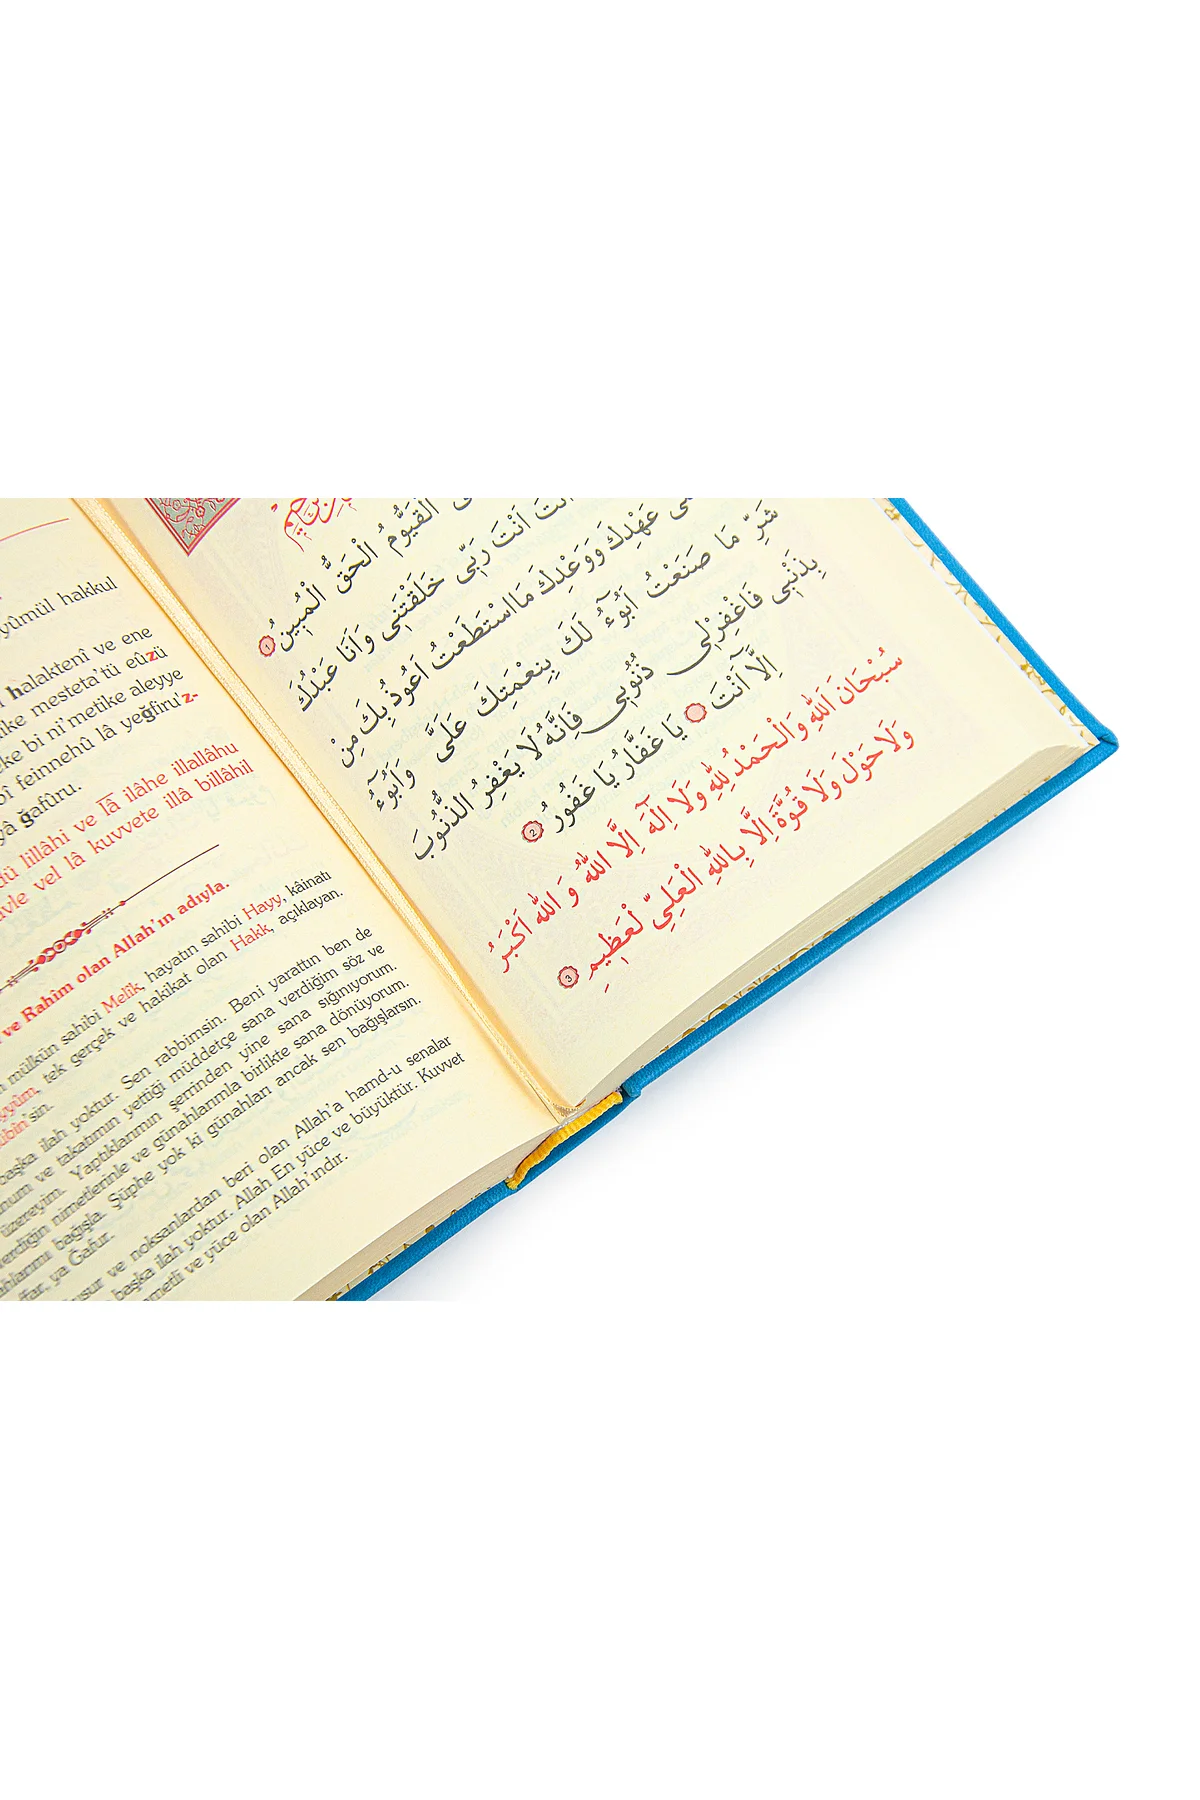 yûmül hakkul
halaktenî ve ene
ike mesteta'tü eûzü
eke bi ni'metike aleyye
bî feinnehû lâ yeğfiru'z-
yâ ğafûru.
dü lillâhi ve lâ ilâhe illallâhu
avle vel lâ kuvvete illâ billâhil
ve Rahîm olan Allah'ın adıyla.
mülkün sahibi Melîk, hayatın sahibi Hayy, kâinatı
ayyûm, tek gerçek ve hakikat olan Hakk, açıklayan.
übin'sin.
başka ilah yoktur. Sen rabbimsin. Beni yarattın ben de
num ve takatımın yettiği müddetçe sana verdiğim söz ve
üzereyim. Yaptıklarımın şerrinden yine sana sığınıyorum.
verdiğin nimetlerinle ve günahlarımla birlikte sana dönüyorum.
ahlarımı bağışla. Şüphe yok ki günahları ancak sen bağışlarsın.
ffar, ya Ğafur.
kusur ve noksanlardan beri olan Allah'a hamd-u senalar
başka ilah yoktur. Allah En yüce ve büyüktür. Kuvvet
metli ve yüce olan Allah'ındır.
الْقَيُّومُ الْحَقُّ الْمُبِينُ ١
اَنْتَ رَبِّى خَلَقْتَنِى وَاَنَا عَبْدُكَ
عَهْدِكَ وَوَعْدِكَ مَا اسْتَطَعْتُ اَعُوذُ بِكَ مِنْ
شَرِّ مَا صَنَعْتُ اَبُوٓءُ لَكَ بِنِعْمَتِكَ عَلَىَّ وَاَبُوٓءُ
بِذَنْبِى فَاغْفِرْلِى ذُنُوبِى فَاِنَّهُ لَا يَغْفِرُ الذُّنُوبَ
اِلَّآ اَنْتَ يَا غَفَّارُ يَا غَفُورُ ٢
سُبْحَانَ اللّٰهِ وَالْحَمْدُ لِلّٰهِ وَلَا اِلٰهَ اِلَّا اللّٰهُ وَ اللّٰهُ اَكْبَرُ
وَلَا حَوْلَ وَلَا قُوَّةَ اِلَّا بِاللّٰهِ الْعَلِىِّ لْعَظِيمِ ٣